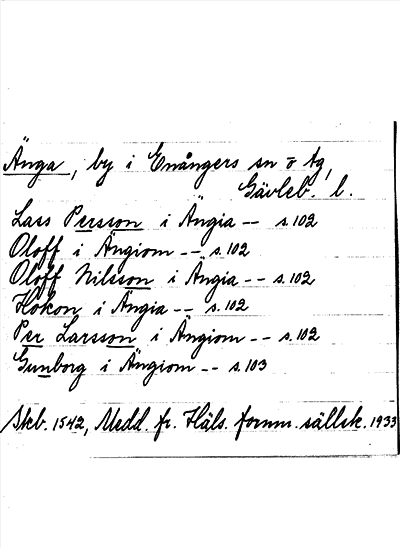 Änga, by i Enångers sn o tg,
Gävleb. l.
Lass Persson i Ängia -- s.102
Oloff i Ängiom -- s.102
Oloff Nilsson i Ängia -- s.102
Håkon i Ängia -- s.102
Per Larsson i Ängiom -- s.102
Gunborg i Ängiom -- s.103
Skb. 1542, Medd. fr. Häls. fornm. sällsk. 1933